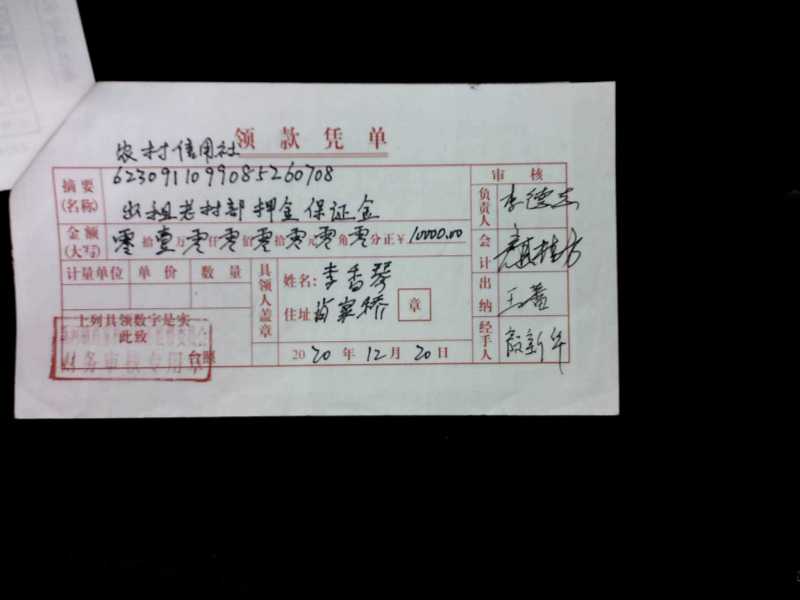 领款凭单
农村信用社
6230911099085260708
摘要(名称) 出租老村部押金保证金
审核
负责人 李德志
金额(大写) 零拾壹万零仟零佰零拾零元零角零分正￥10000.00
会计
计量单位 单价 数量
具领人盖章
姓名：李香琴
住址 章
出纳 王
上列具领数字是实
此致
台照
财务审核专用章
2020年12月20日
经手人 殷新华